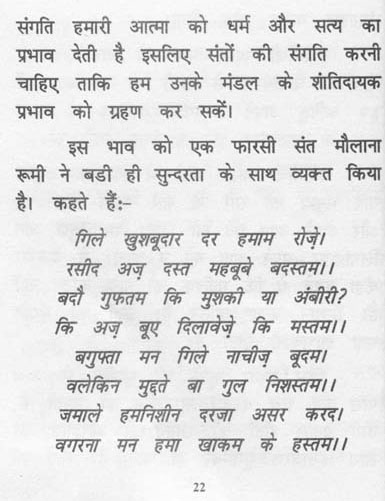 संगति हमारी आत्मा को धर्म और सत्य का
प्रभाव देती है इसलिए संतों की संगति करनी
चाहिए ताकि हम उनके मंडल के शांतिदायक
प्रभाव को ग्रहण कर सकें।
इस भाव को एक फारसी संत मौलाना
रूमी ने बडी ही सुन्दरता के साथ व्यक्त किया
है। कहते हैं:-
गिले खुशबूदार दर हमाम रोज़े।
रसीद अज़ दस्त महबूबे बदस्तम।।
बदौ गुफतम कि मुशकी या अंबीरी?
कि अज़ बूए दिलावेज़े कि मस्तम।।
बगुफ्ता मन गिले नाचीज़ बूदम।
वलेकिन मुद्दते बा गुल निशस्तम।।
जमाले हमनिशीन दरजा असर करद।
वगरना मन हमा खाकम के हस्तम।।
22